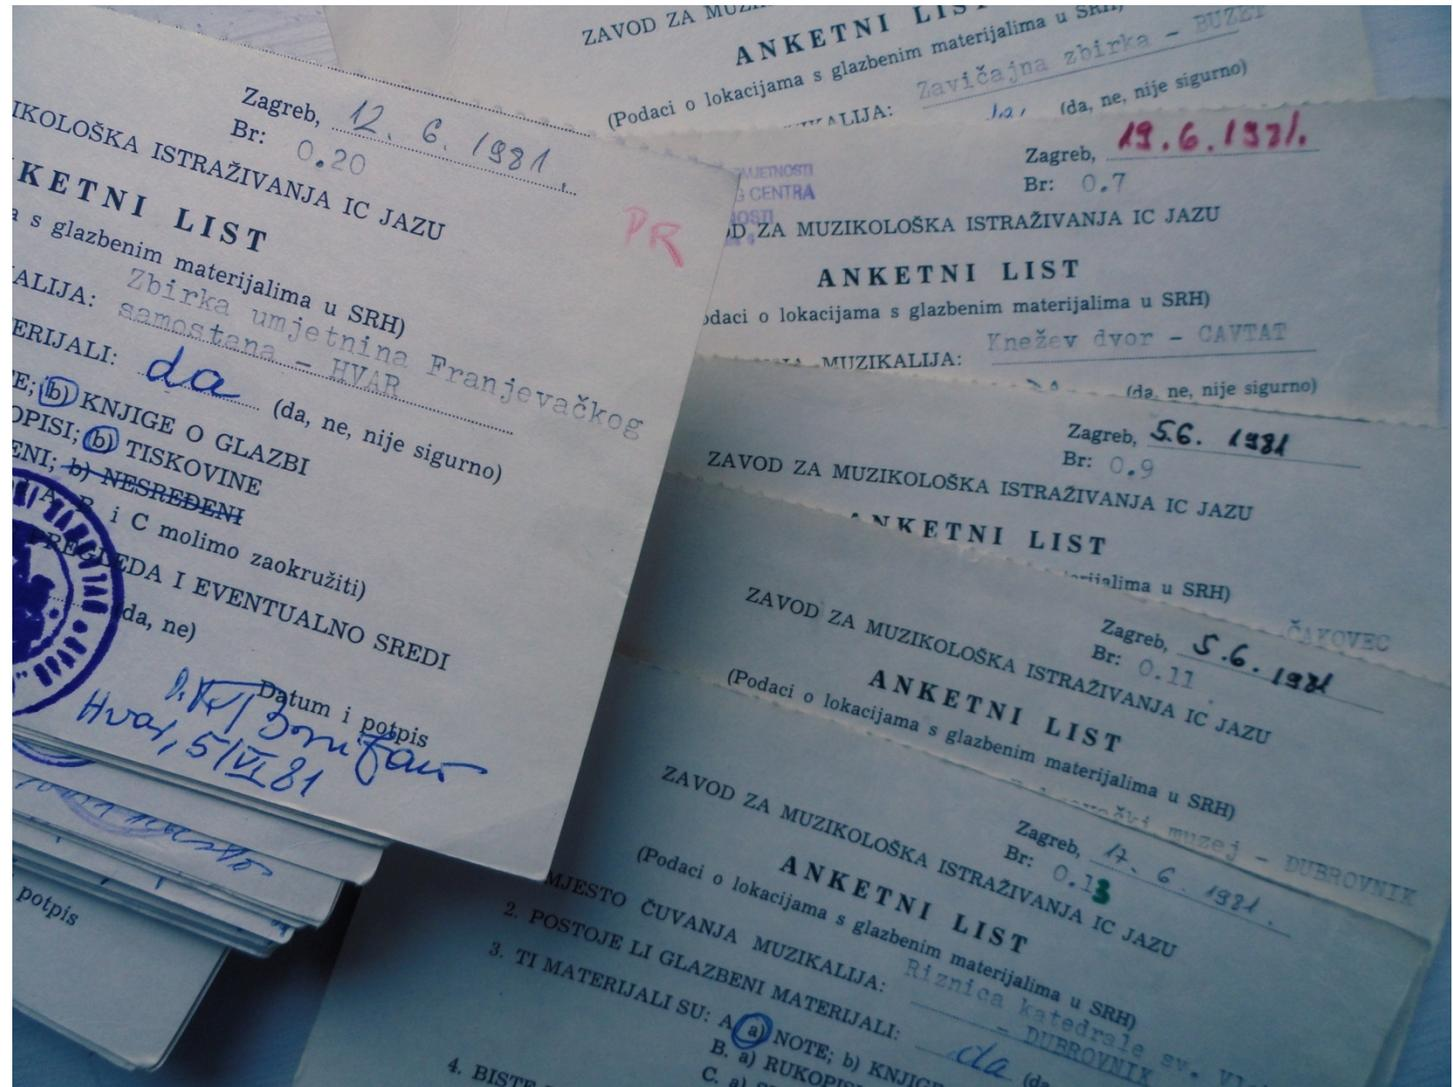 Zagreb, 12. 6. 1981.
Br: 0.20
IKOLOŠKA ISTRAŽIVANJA IC JAZU
KETNI LIST
a s glazbenim materijalima u SRH)
ALIJA: Zbirka umjetnina Franjevačkog
samostana - HVAR
ERIJALI: da (da, ne, nije sigurno)
E; b) KNJIGE O GLAZBI
OPISI; b) TISKOVINE
ENI; b) NESREĐENI
A, B i C molimo zaokružiti)
PREGLEDA I EVENTUALNO SREDI
(da, ne)
Datum i potpis
Hvar, 5/VI 81
PR
potpis
ZAVOD ZA MUZI
ANKETNI LIST
(Podaci o lokacijama s glazbenim materijalima u SRH)
ALIJA: Zavičajna zbirka - BUZET
da, (da, ne, nije sigurno)
Zagreb, 19.6.1981.
Br: 0.7
MJETNOSTI
G CENTRA
NOSTI
OD ZA MUZIKOLOŠKA ISTRAŽIVANJA IC JAZU
ANKETNI LIST
odaci o lokacijama s glazbenim materijalima u SRH)
MUZIKALIJA: Knežev dvor - CAVTAT
(da, ne, nije sigurno)
Zagreb, 5.6. 1981
Br: 0.9
ZAVOD ZA MUZIKOLOŠKA ISTRAŽIVANJA IC JAZU
ANKETNI LIST
rijalima u SRH)
ČAKOVEC
Zagreb, 5.6. 1981
Br: 0.11
ZAVOD ZA MUZIKOLOŠKA ISTRAŽIVANJA IC JAZU
ANKETNI LIST
(Podaci o lokacijama s glazbenim materijalima u SRH)
muzej - DUBROVNIK
Zagreb, 17. 6. 1981.
Br: 0.13
ZAVOD ZA MUZIKOLOŠKA ISTRAŽIVANJA IC JAZU
ANKETNI LIST
(Podaci o lokacijama s glazbenim materijalima u SRH)
MJESTO ČUVANJA MUZIKALIJA: Riznica katedrale sv. Vl
- DUBROVNIK
2. POSTOJE LI GLAZBENI MATERIJALI: da (da
3. TI MATERIJALI SU: A. a) NOTE; b) KNJIGE
B. a) RUKOPISI
C. a)
4. BISTE